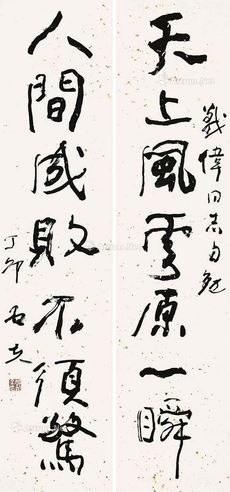 戴偉同志自勉
天上風雲原一瞬
人間成敗不須驚
丁卯